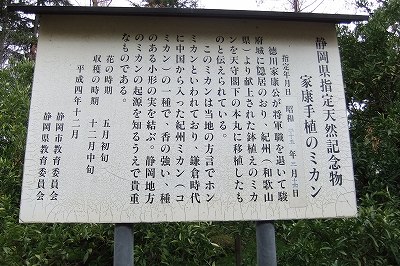 静岡県指定天然記念物
家康手植のミカン
指定年月日 昭和 年 月 日
徳川家康公が将軍職を退いて駿
府城に隠居のおり、紀州(和歌山
県)より献上された鉢植えのミカ
ンを天守閣下の本丸に移植したも
のと伝えられている。
このミカンは当地の方言でホン
ミカンといわれており、鎌倉時代
に中国から入った紀州ミカン(コ
ミカン)の一種で、香の強い、種
のある小形の実を結ぶ。静岡地方
のミカンの起源を知るうえで貴重
なものである。
花の時期 五月初旬
収穫の時期 十二月中旬
平成四年十二月
静岡市教育委員会
静岡県教育委員会